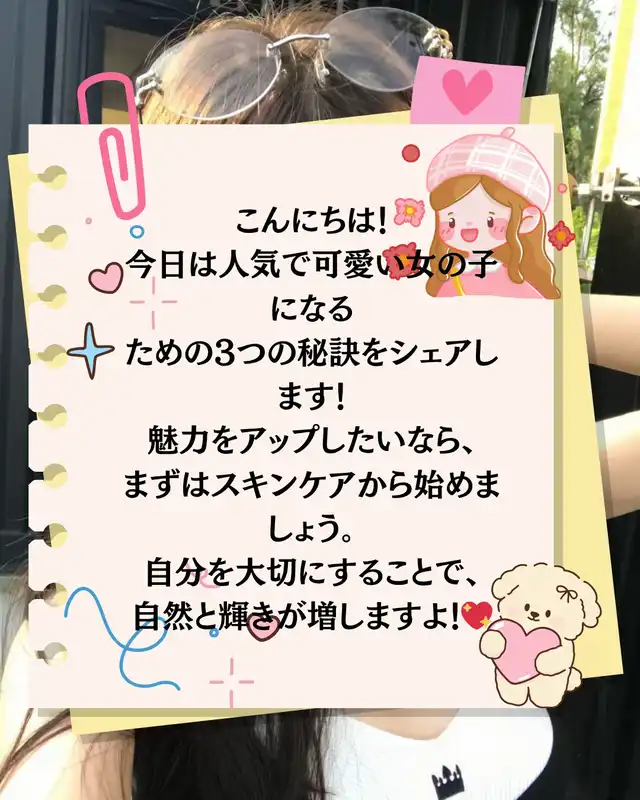 こんにちは!
今日は人気で可愛い女の子
になる
ための3つの秘訣をシェアし
ます!
魅力をアップしたいなら、
まずはスキンケアから始めま
しょう。
自分を大切にすることで、
自然と輝きが増しますよ!💖